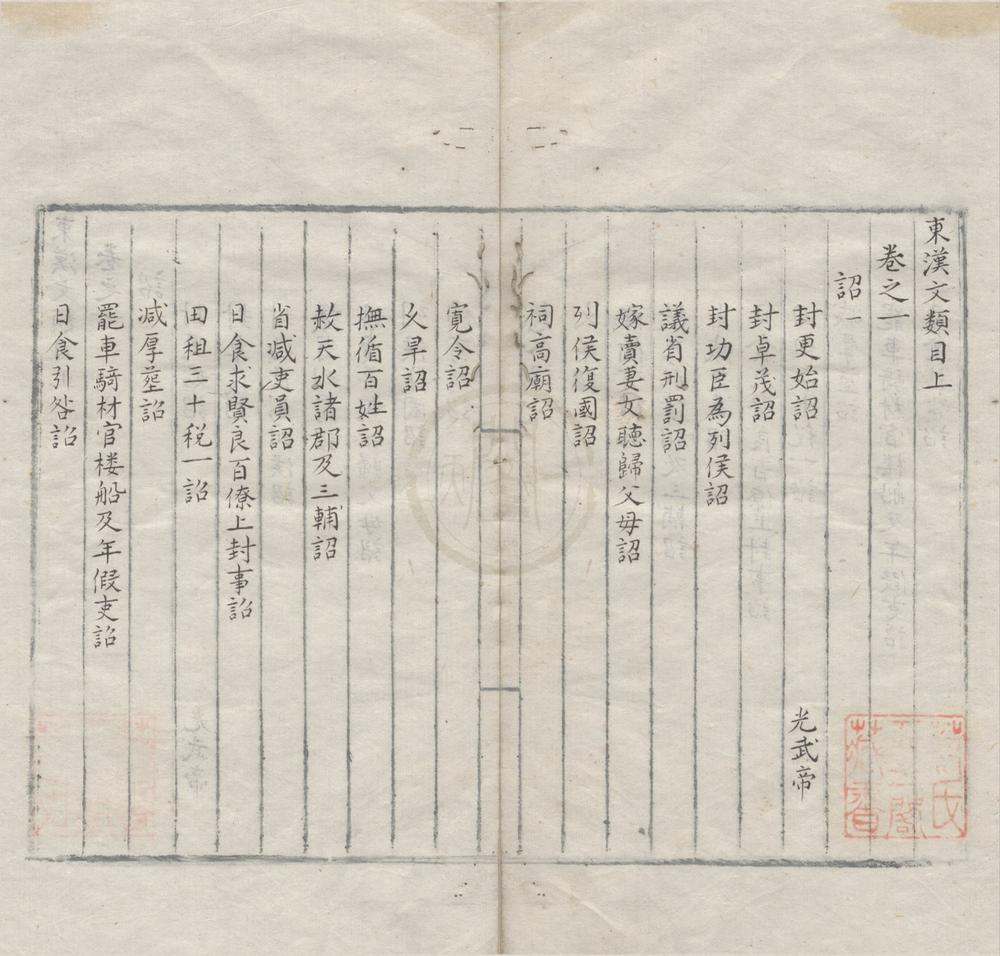 東漢文類目上
卷之一
詔一
封更始詔 光武帝
封卓茂詔
封功臣為列侯詔
議省刑罰詔
嫁賣妻女聽歸父母詔
列侯復國詔
祠高廟詔
寬令詔
久旱詔
撫循百姓詔
赦天水諸郡及三輔詔
省减吏員詔
日食求賢良百僚上封事詔
田租三十税一詔
减厚塟詔
罷車騎材官楼船及年假吏詔
日食引咎詔